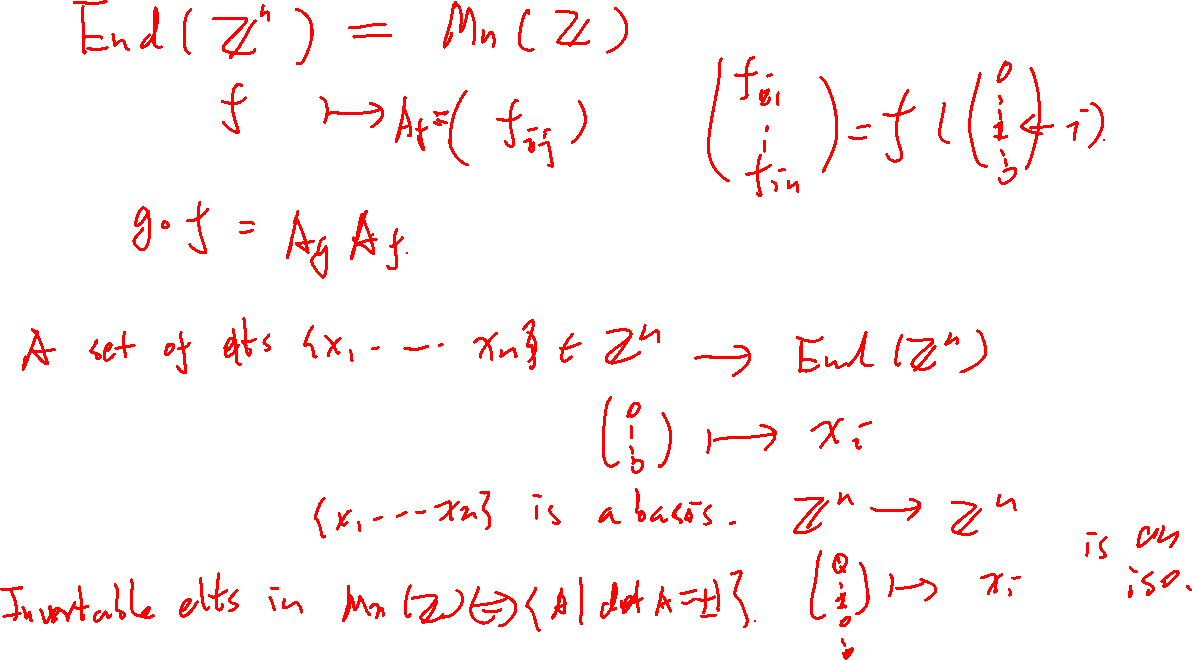 End(ℤⁿ) = Mn(ℤ)
f ↦ A_f = (f_ij)    (f_i1 ⋮ f_in) = f((0 ⋮ 1 ⋮ 0) ← i)
g∘f = A_g A_f.
A set of elts {x₁ ---- xn} ∈ ℤⁿ → End(ℤⁿ)
(0 ⋮ 0) ↦ xᵢ
{x₁ ---- xn} is a basis. ℤⁿ → ℤⁿ is an iso.
Invertable elts in Mn(ℤ) ⇔ {A | det A = ±1}. (0 ⋮ 1 0 ⋮) ↦ xᵢ